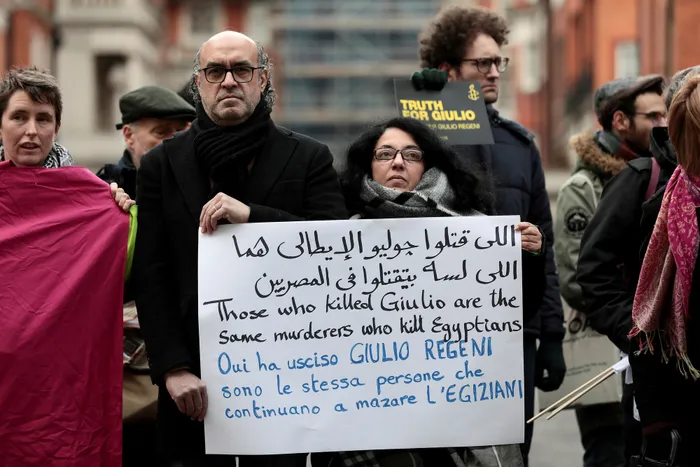 TRUTH
FOR GIULIO
GIULIO REGENI
اللى قتلوا جوليو الإيطالى هما
اللى لسه بيقتلوا فى المصريين
Those who killed Giulio are the
same murderers who kill Egyptians
Qui ha usciso GIULIO REGENI
sono le stessa persone che
continuano a mazare L'EGIZIANI